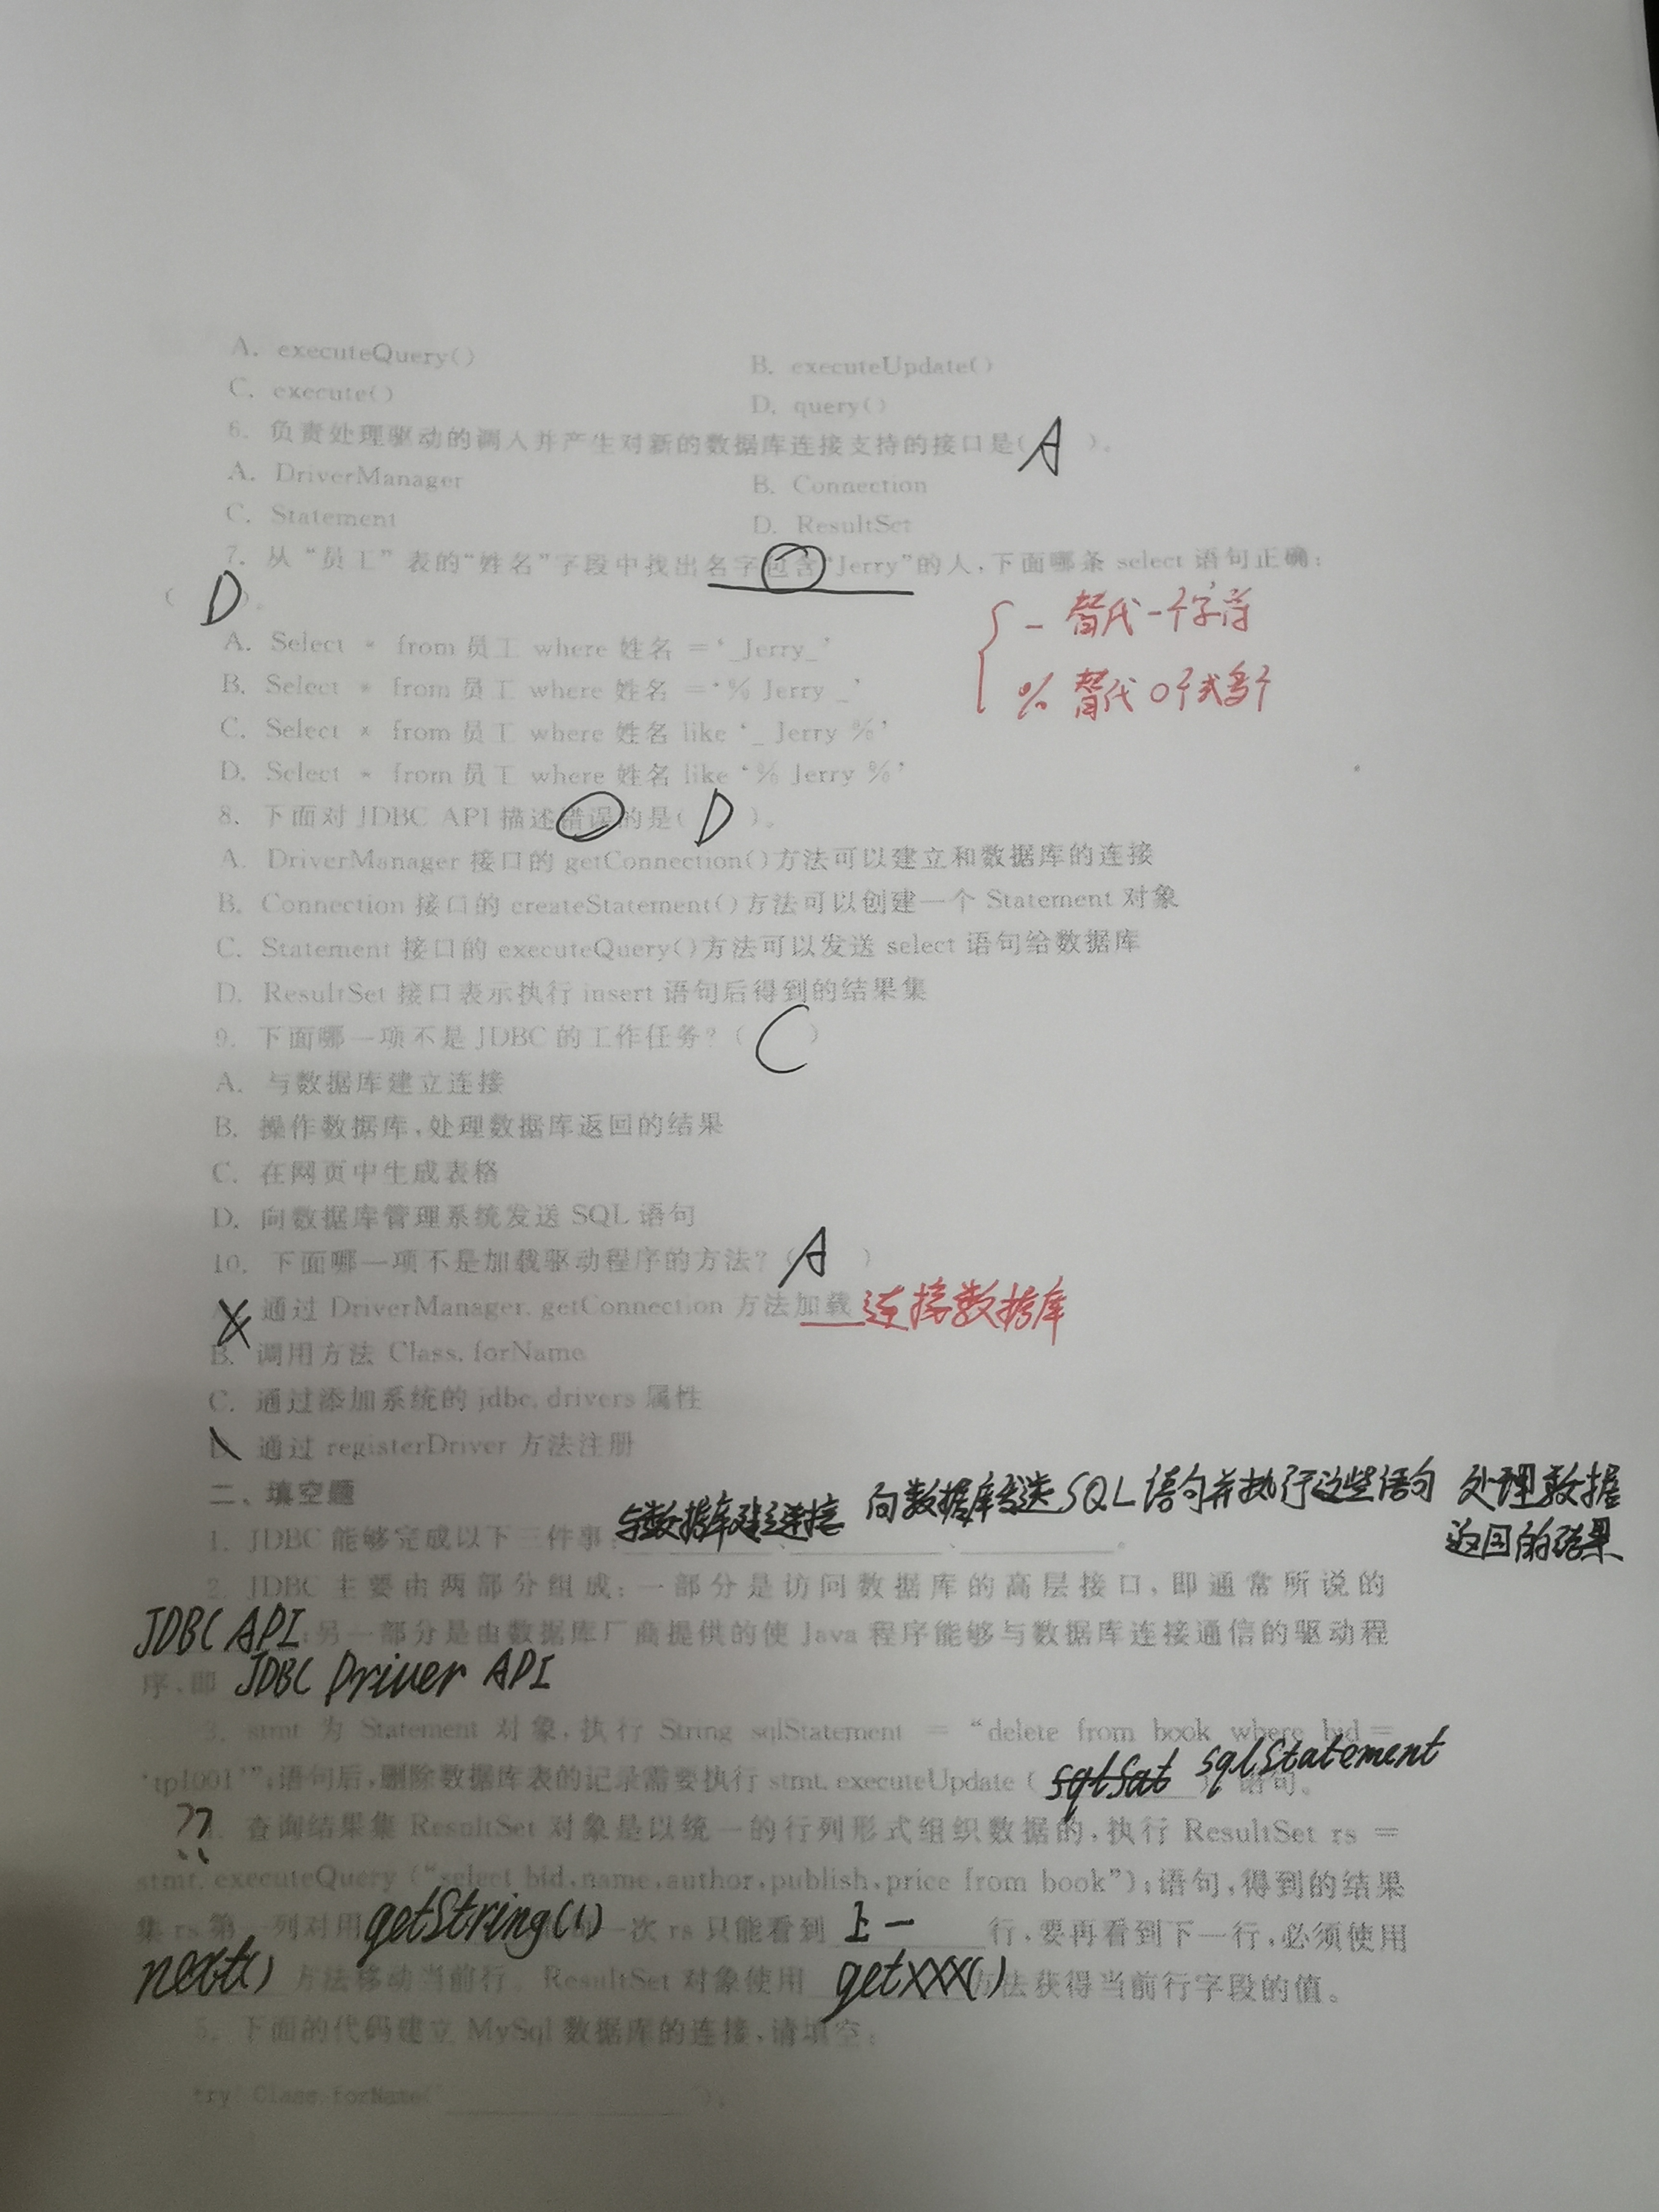 A. executeQuery()
B. executeUpdate()
C. execute()
D. query()
6. 负责处理驱动的调入并产生对新的数据库连接支持的接口是( A )。
A. DriverManager
B. Connection
C. Statement
D. ResultSet
7. 从“员工”表的“姓名”字段中找出名字包含“Jerry”的人,下面哪条 select 语句正确:
( D )。
_ 替代一个字符
% 替代0个或多个
A. Select * from 员工 where 姓名 =‘_Jerry_’
B. Select * from 员工 where 姓名 =‘% Jerry _’
C. Select * from 员工 where 姓名 like ‘_ Jerry %’
D. Select * from 员工 where 姓名 like ‘% Jerry %’
8. 下面对 JDBC API 描述错误的是( D )。
A. DriverManager 接口的 getConnection()方法可以建立和数据库的连接
B. Connection 接口的 createStatement()方法可以创建一个 Statement 对象
C. Statement 接口的 executeQuery()方法可以发送 select 语句给数据库
D. ResultSet 接口表示执行 insert 语句后得到的结果集
9. 下面哪一项不是 JDBC 的工作任务?( C )
A. 与数据库建立连接
B. 操作数据库,处理数据库返回的结果
C. 在网页中生成表格
D. 向数据库管理系统发送 SQL 语句
10. 下面哪一项不是加载驱动程序的方法?( A )
A. 通过 DriverManager. getConnection 方法加载 连接数据库
B. 调用方法 Class. forName
C. 通过添加系统的 jdbc. drivers 属性
D. 通过 registerDriver 方法注册
二、填空题
与数据库建立连接 向数据库发送SQL语句并执行这些语句 处理数据
返回的结果
1. JDBC 能够完成以下三件事:
2. JDBC 主要由两部分组成:一部分是访问数据库的高层接口,即通常所说的
JDBC API;另一部分是由数据库厂商提供的使 Java 程序能够与数据库连接通信的驱动程
序,即 JDBC Driver API
3. stmt 为 Statement 对象,执行 String sqlStatement = “delete from book where bid =
‘tp1001’”;语句后,删除数据库表的记录需要执行 stmt. executeUpdate ( sqlStatement ) 语句。
?? 查询结果集 ResultSet 对象是以统一的行列形式组织数据的,执行 ResultSet rs =
stmt. executeQuery (“select bid,name,author,publish,price from book”);语句,得到的结果
集 rs 第一列对用 getString(1) 一次 rs 只能看到 上一 行,要再看到下一行,必须使用
next() 方法移动当前行。ResultSet 对象使用 getXXX() 方法获得当前行字段的值。
5. 下面的代码建立 MySql 数据库的连接,请填空:
try{ Class.forName(